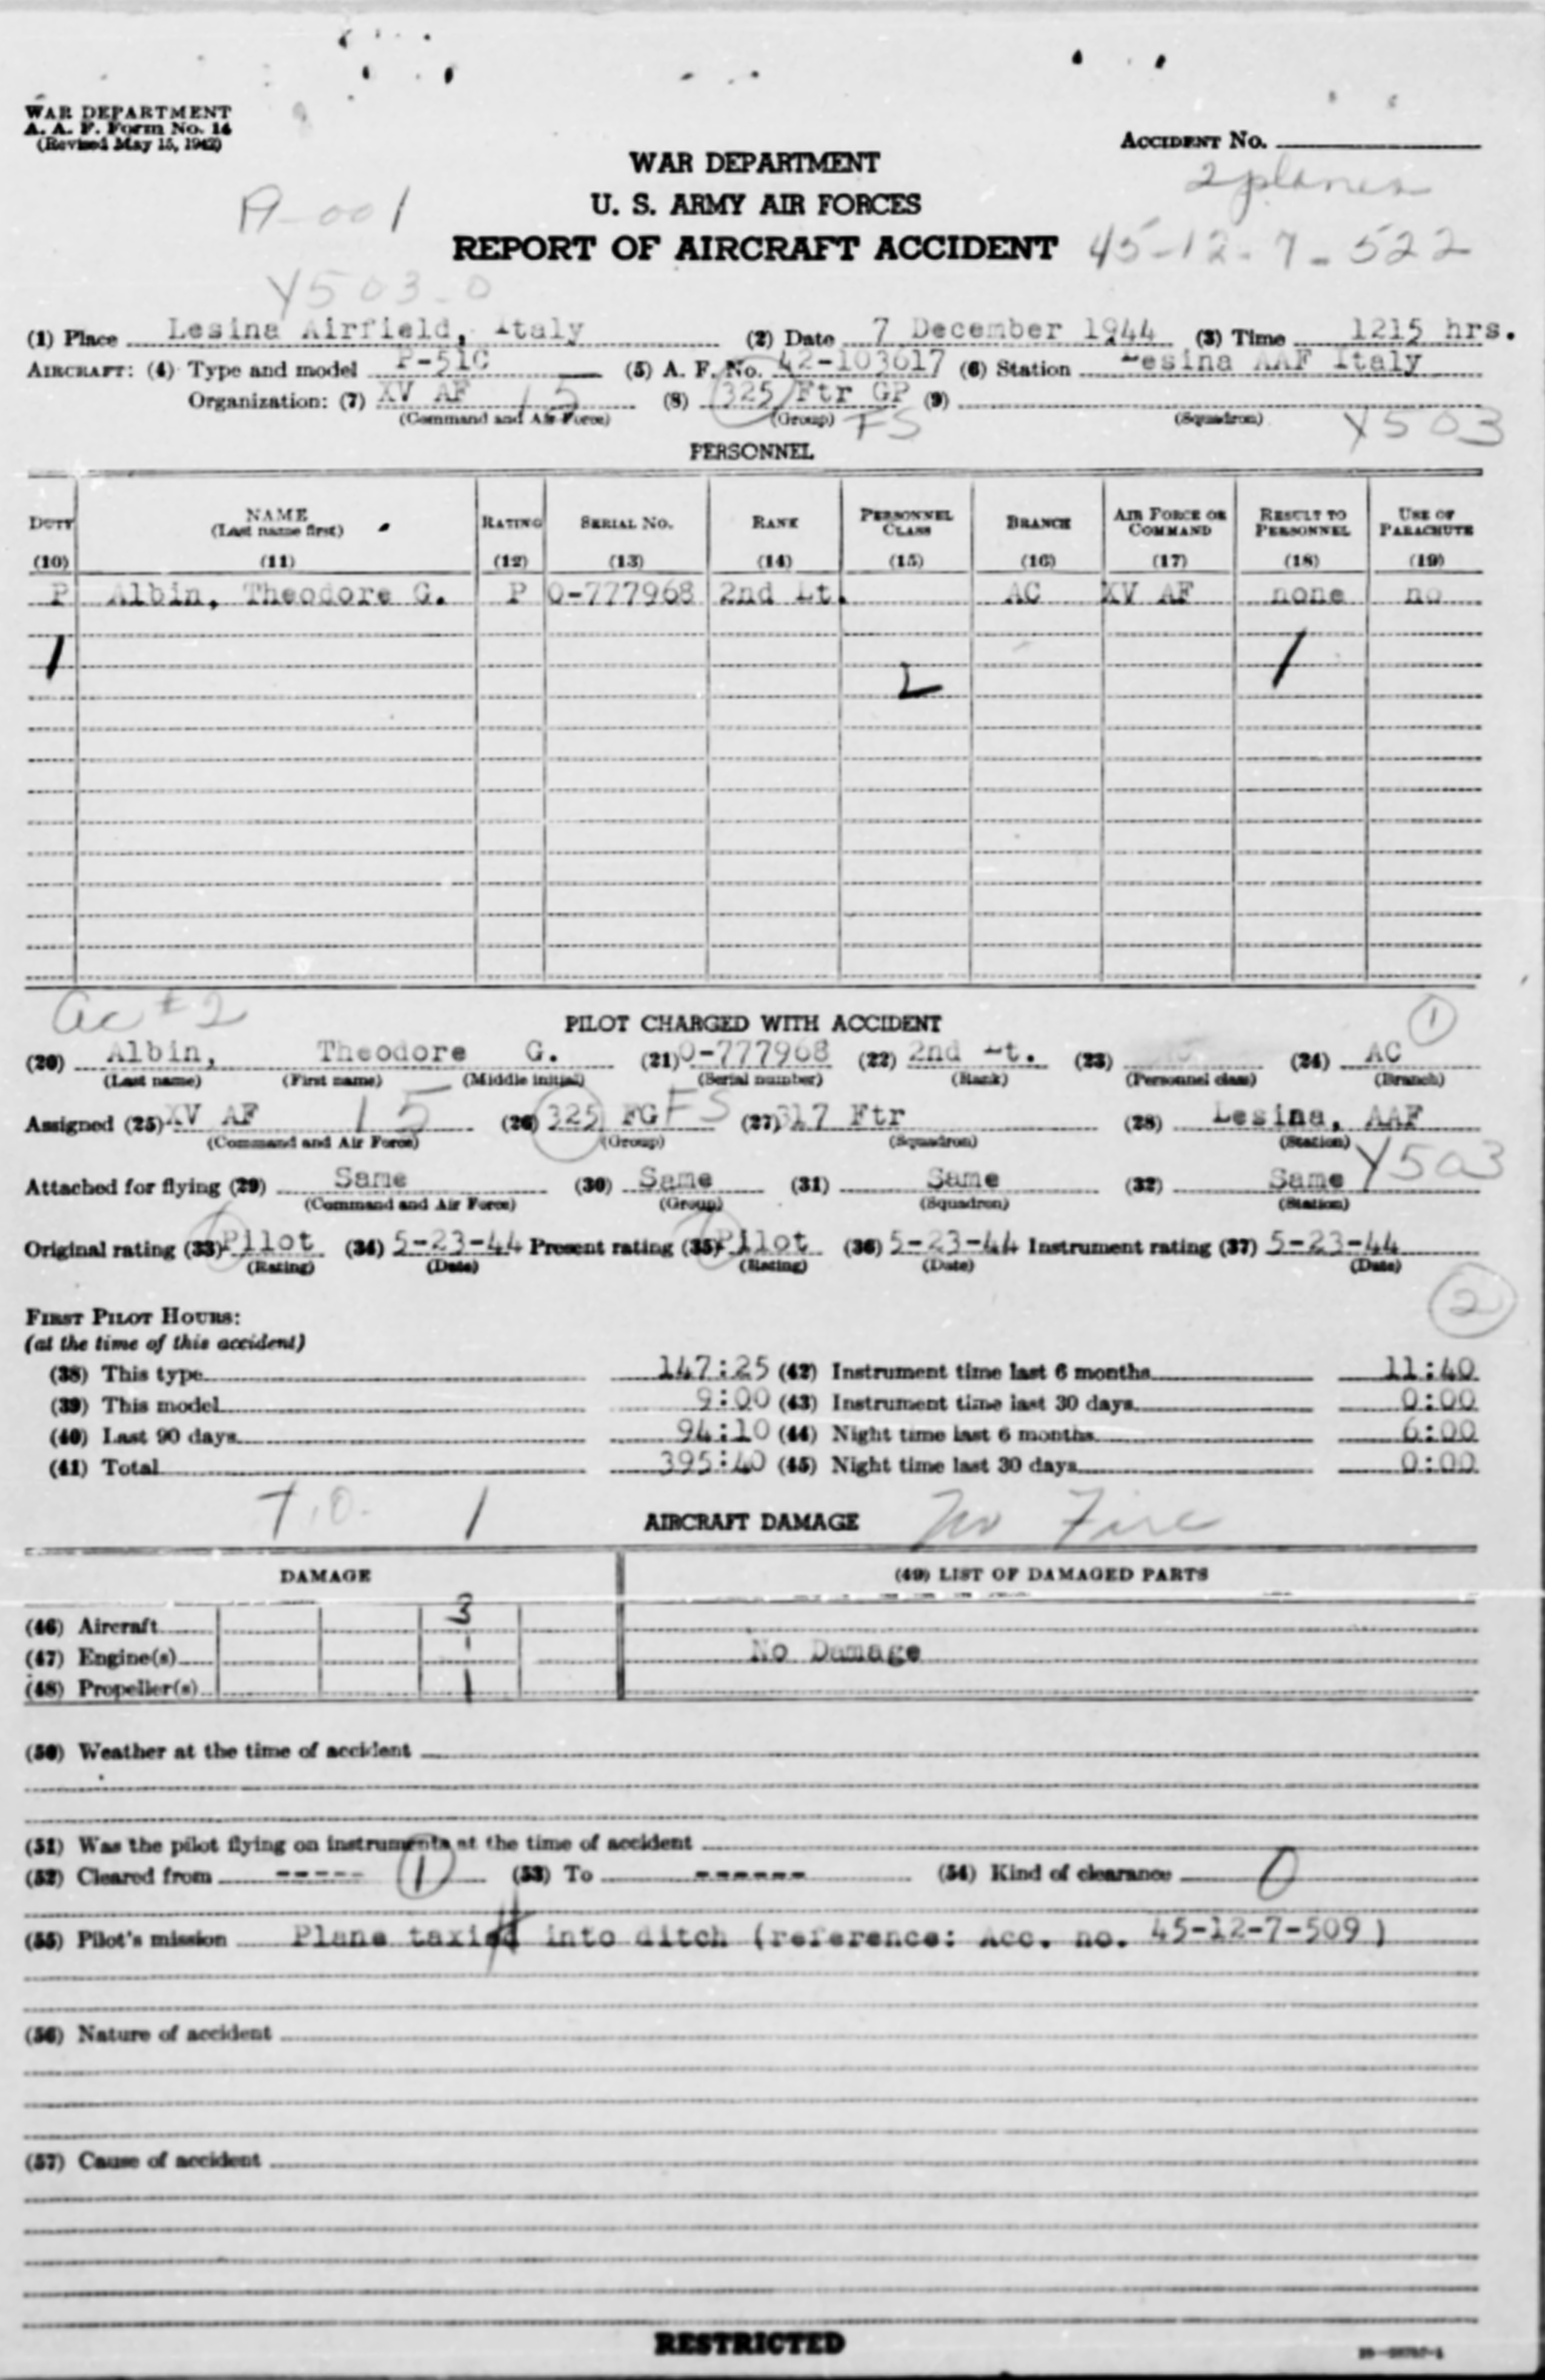 WAR DEPARTMENT
A. A. F. Form No. 14
(Revised May 15, 1942)
ACCIDENT No.
2 planes
WAR DEPARTMENT
U. S. ARMY AIR FORCES
A-001
REPORT OF AIRCRAFT ACCIDENT 45-12-7-522
Y503-0
(1) Place Lesina Airfield, Italy (2) Date 7 December 1944 (3) Time 1215 hrs.
AIRCRAFT: (4) Type and model P-51C (5) A. F. No. 42-103617 (6) Station Lesina AAF Italy
Organization: (7) XV AF 15 (8) 325 Ftr GP (9)
(Command and Air Force) (Group) FS (Squadron) Y503
PERSONNEL
DUTY NAME (Last name first) RATING SERIAL NO. RANK PERSONNEL CLASS BRANCH AIR FORCE OR COMMAND RESULT TO PERSONNEL USE OF PARACHUTE
(10) (11) (12) (13) (14) (15) (16) (17) (18) (19)
P Albin, Theodore G. P O-777968 2nd Lt. AC XV AF none no
1 2 1
ac #2 1
PILOT CHARGED WITH ACCIDENT
(20) Albin, Theodore G. (21) O-777968 (22) 2nd Lt. (23) (24) AC
(Last name) (First name) (Middle initial) (Serial number) (Rank) (Personnel class) (Branch)
Assigned (25) XV AF 15 (26) 325 FG FS (27) 317 Ftr (28) Lesina, AAF
(Command and Air Force) (Group) (Squadron) (Station) Y503
Attached for flying (29) Same (30) Same (31) Same (32) Same
(Command and Air Force) (Group) (Squadron) (Station)
Original rating (33) Pilot (34) 5-23-44 Present rating (35) Pilot (36) 5-23-44 Instrument rating (37) 5-23-44
(Rating) (Date) (Rating) (Date) (Date)
2
FIRST PILOT HOURS:
(at the time of this accident)
(38) This type 147:25 (42) Instrument time last 6 months 11:40
(39) This model 9:00 (43) Instrument time last 30 days 0:00
(40) Last 90 days 94:10 (44) Night time last 6 months 6:00
(41) Total 395:40 (45) Night time last 30 days 0:00
T.O. 1 AIRCRAFT DAMAGE No Fire
DAMAGE (49) LIST OF DAMAGED PARTS
(46) Aircraft 3
(47) Engine(s) 1 No Damage
(48) Propeller(s) 1
(50) Weather at the time of accident
(51) Was the pilot flying on instruments at the time of accident
(52) Cleared from ----- 1 (53) To ------ (54) Kind of clearance 0
(55) Pilot's mission Plane taxied into ditch (reference: Acc. no. 45-12-7-509)
(56) Nature of accident
(57) Cause of accident
RESTRICTED